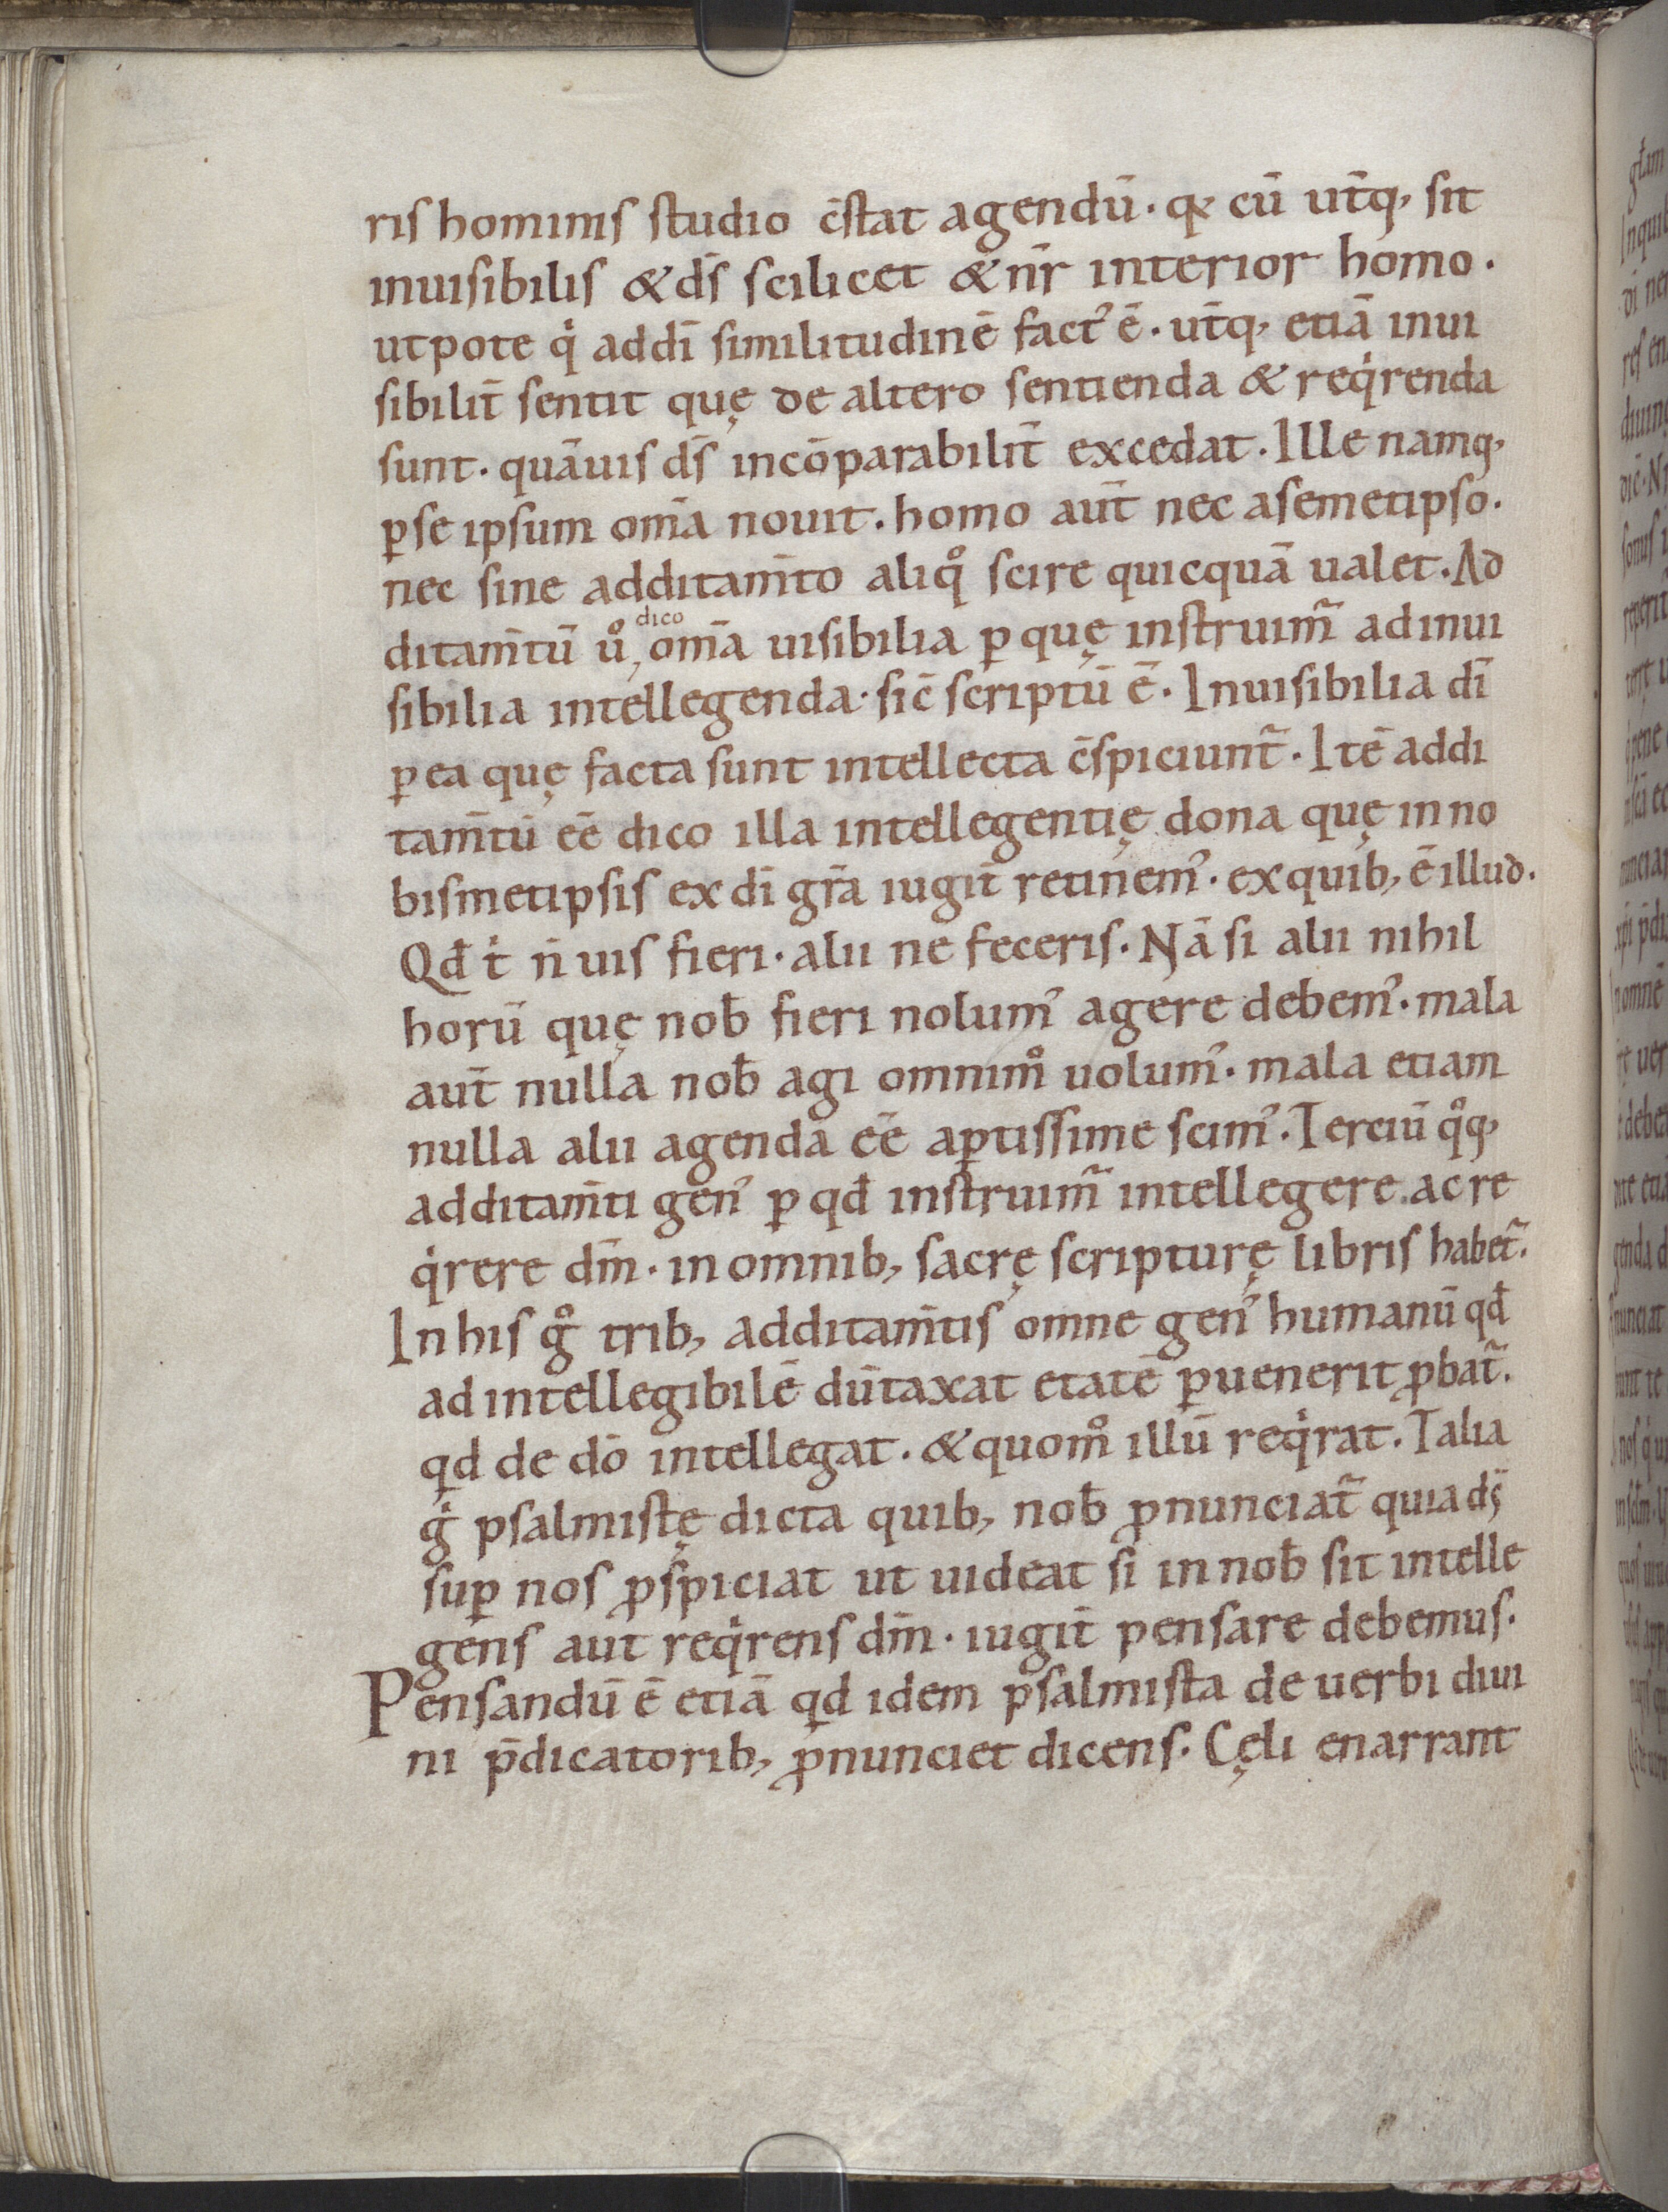 ris hominis studio c̄stat agendū · qꝛ cū ut̄q; sit
inuisibilis & dс̄ scilicet & nr̄ interior homo ·
utpote qͥ addī similitudinē factꝰ ē · ut̄q; etiā inui
sibilit̄ sentit quę de altero sentienda & reqͥrenda
sunt · quāuis ds̄ incōparabilit̄ excedat · Ille namq;
ꝑse ipsum om̄a nouit · homo aut̄ nec asemetipso ·
nec sine additam̄to aliqͦ scire quicquā ualet · Ad
ditam̄tū uͦ, dico om̄a uisibilia ꝑ quę instruim̃ adinui
sibilia intellegenda · sic̄ scriptū ē · Inuisibilia dī
ꝑ ea quę facta sunt intellecta c̄spiciunt̃ · Itē addi
tam̄tū eē dico illa intellegentię dona quę inno
bismetipsis ex dī gr̄a iugit̄ retinemꝰ · exquib; ē illud ·
Qđ tͥ n̄ uis fieri · alii ne feceris · Nā si alii nihil
horū quę noƀ fieri nolumꝰ agere debemꝰ · mala
aut̄ nulla noƀ agi omnimͦ uolumꝰ · mala etiam
nulla alii agenda eē aꝑtissime scimꝰ · Terciū qͦq;
additam̄ti genꝰ ꝑ qđ instruim̃ intellegere acre
qͥrere dm̄ · in omnib; sacrę scripturę libris habet̃ ·
In his gͦ trib; additam̄tis omne genꝰ humanū qđ
ad intellegibilē dūtaxat etatē ꝑuenerit ꝓbat̃ ·
qd de dō intellegat · & quomͦ illū reqͥrat · Talia
gͥ psalmistę dicta quib; noƀ ꝓnunciat̃ quia ds̄
suꝑ nos ꝓspiciat ut uideat si in noƀ sit intelle
gens aut reqͥrens dm̄ · iugit̄ pensare debemus ·
Pensandū ē etiā qd idem psalmista de uerbi diui
ni p̄dicatorib; ꝓnunciet dicens · Cęli enarrant